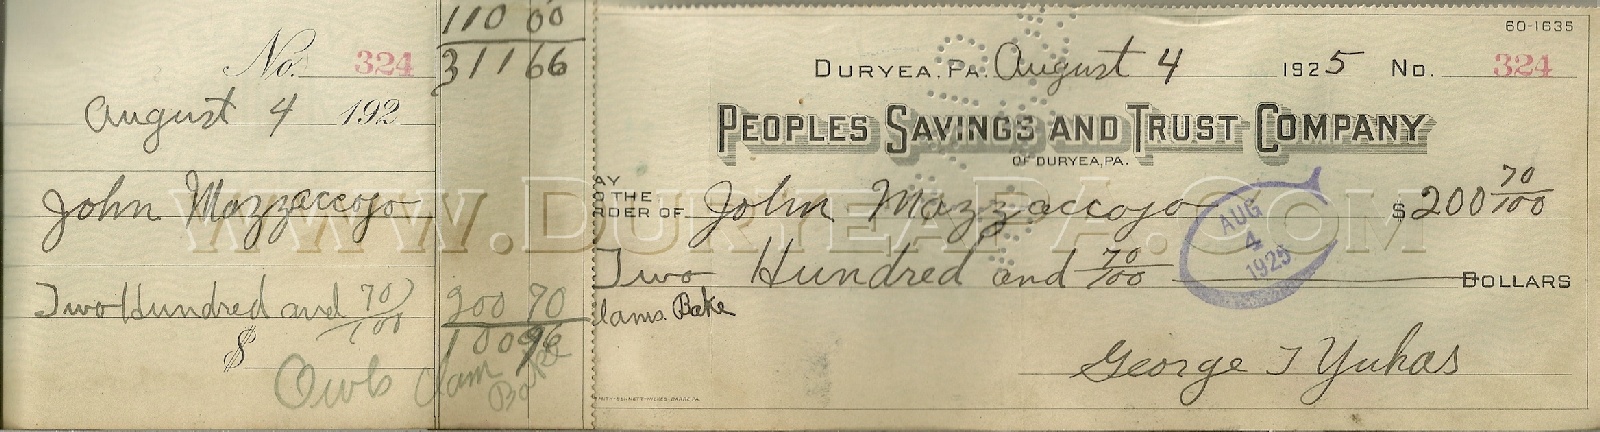 110 00
311 66
No. 324
August 4 192
John Mazzaccojo
Two Hundred and 70/100
200 70
$
110 96
Owls Clam Bake
60-1635
DURYEA, PA. August 4 1925 No. 324
PEOPLES SAVINGS AND TRUST COMPANY
OF DURYEA, PA.
AY
O THE
RDER OF John Mazzaccojo $200 70/100
Two Hundred and 70/100 DOLLARS
lams. Bake
George J Yuhas
AUG
4
1925
WWW.DURYEAPA.COM